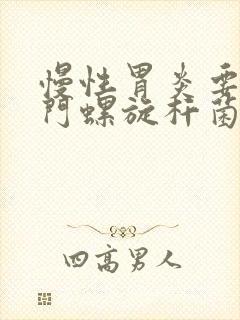 慢性胃炎要
门螺旋杆菌
四高男人